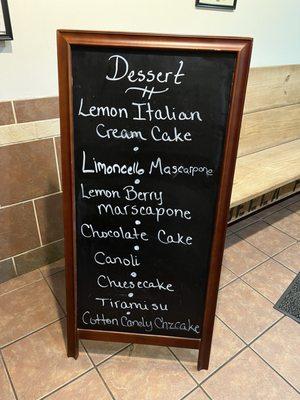 Dessert
Lemon Italian
Cream Cake
Limoncello Mascarpone
Lemon Berry
marscapone
Chocolate Cake
Canoli
Cheesecake
Tiramisu
Cotton Candy Chzcake